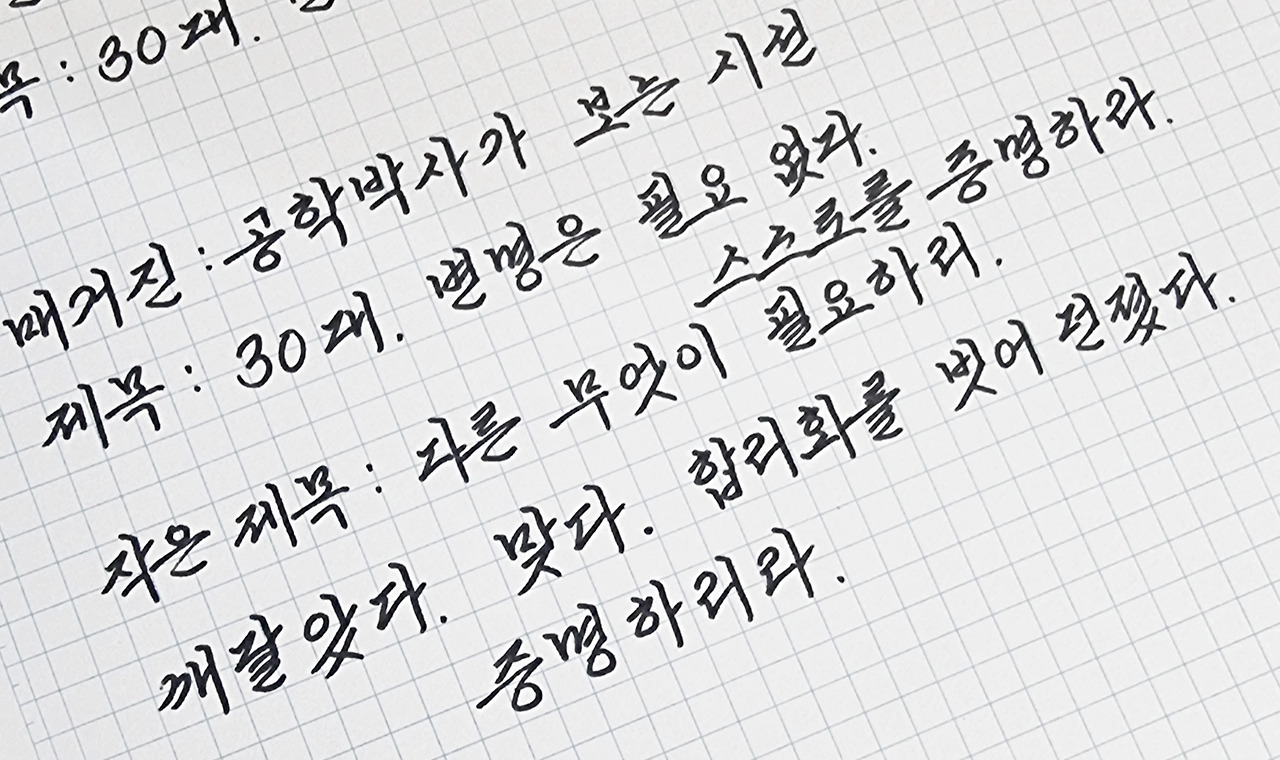 목 : 30대.
매거진 : 공학박사가 보는 시선
제목 : 30대. 변명은 필요 없다.
스스로를 증명하라.
작은 제목 : 다른 무엇이 필요하리.
깨달았다. 맞다. 합리화를 벗어 던졌다.
증명하리라.